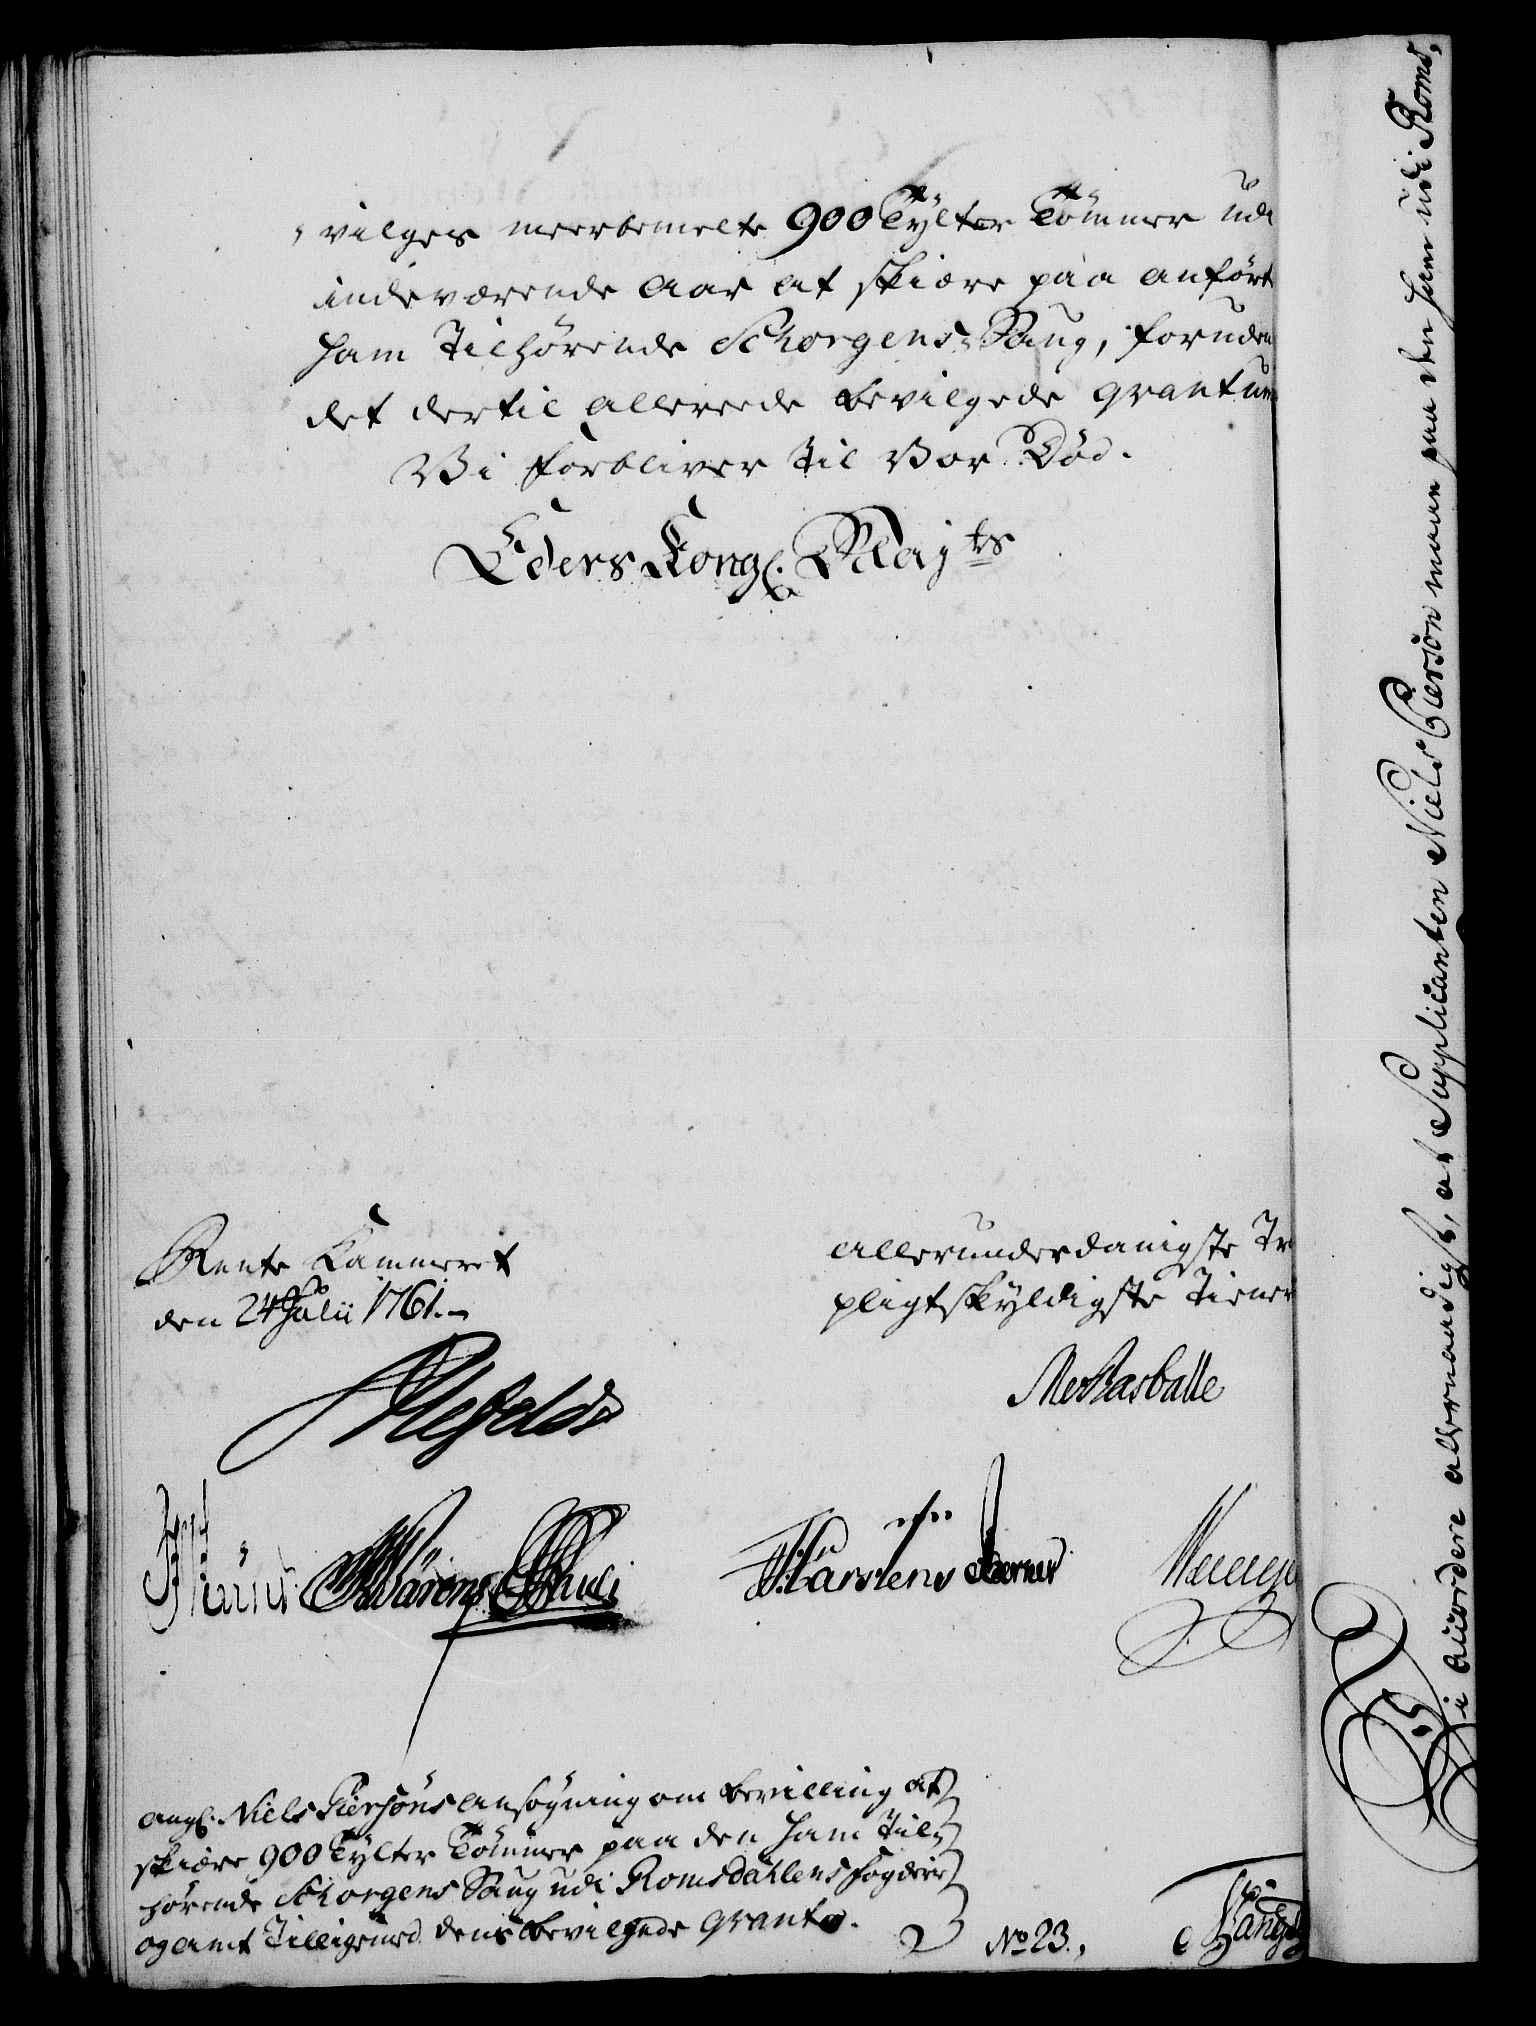 vilges meerbemelte 900 Tylter Tømmer udi
indeværende Aar at skiære paa anførte
ham Tilhørende Schorgens-Saug, foruden
det dertil allereede bevilgede qvantum
Vi forbliver til Vor Død.
Eders Kongl. Mayts
Rente Kammeret
den 24 Julii 1761.-
allerunderdanigste Tr
pligtskyldigste Tiener
Ahlefeldt
Wärens
Carstens
angl. Niels Piersøns ansøgning om bevilling at
skiære 900 Tylter Tømmer paa den ham Til-
hørende Schorgens Saug udi Romsdahlens Fogderie
og amt Tilligemed dens bevilgede qvanto.
No 23.,
Vi avordere allernaadigst, at Supplicanten Niels Pierson maae paa den ham udi Roms,